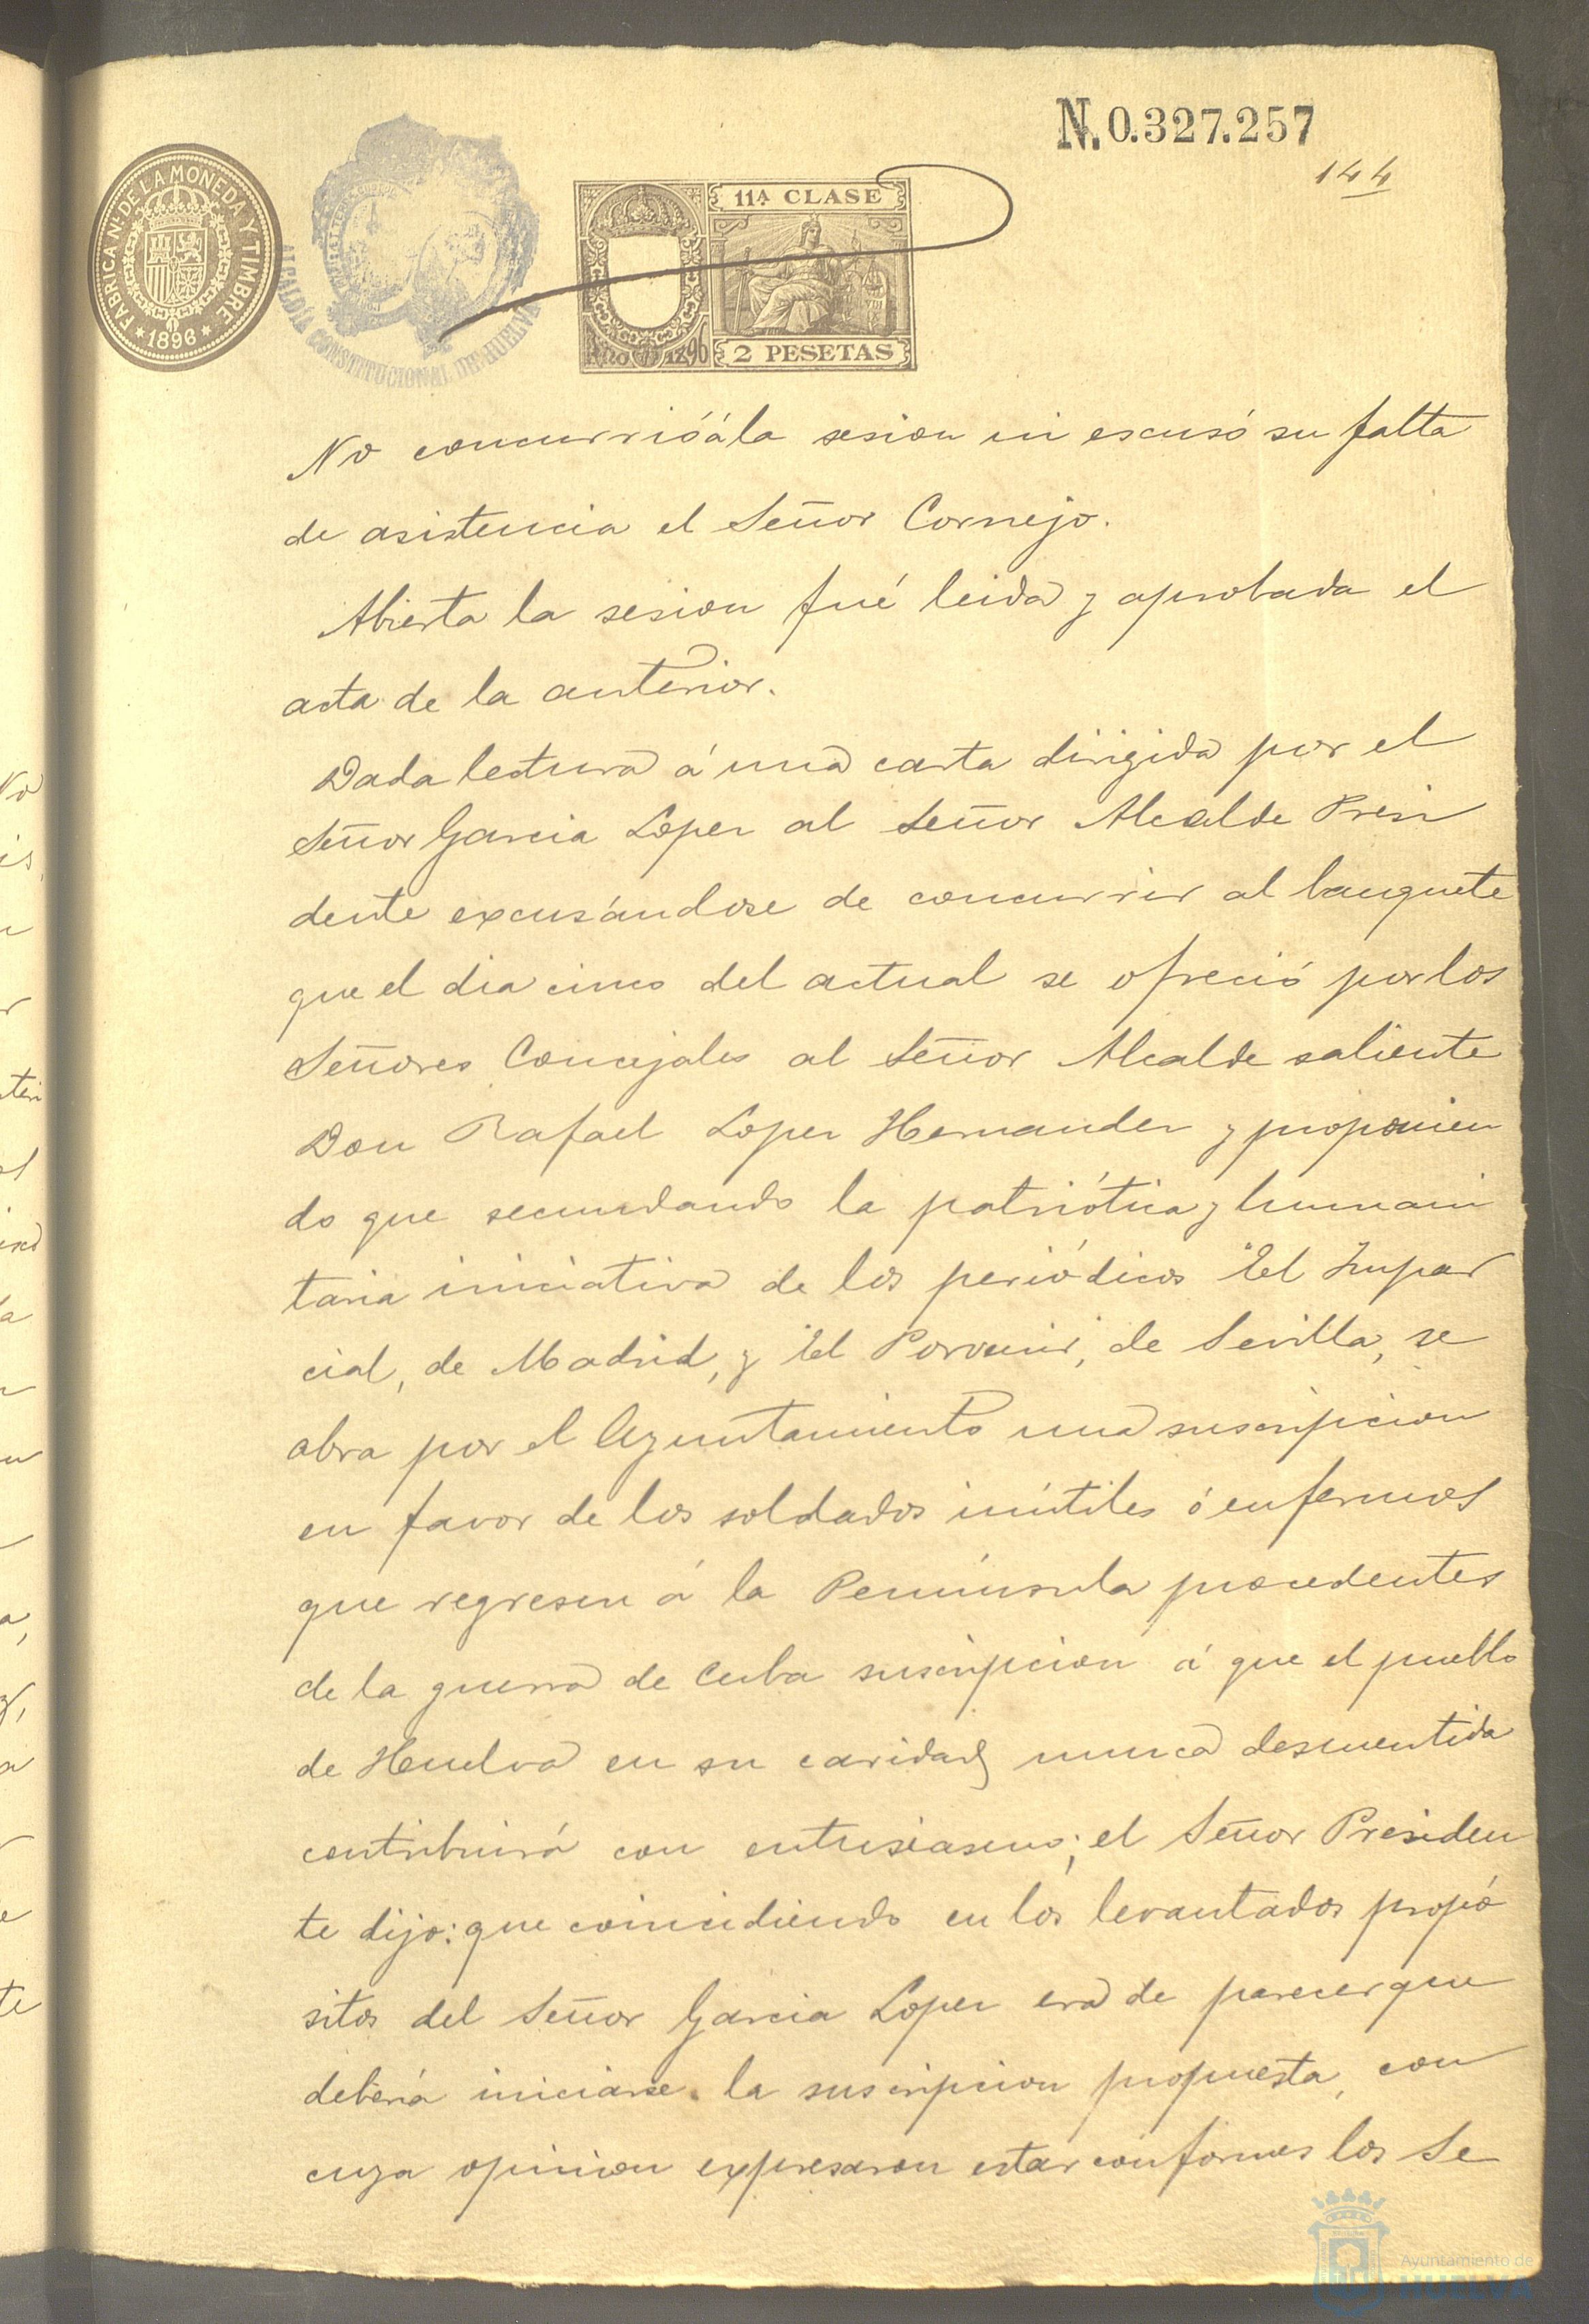 N. 0.327.257
144
FABRICA NL. DE LA MONEDA Y TIMBRE
* 1896 *
ALCALDÍA CONSTITUCIONAL DE HUELVA
11ª CLASE
Año 1896
2 PESETAS
No concurrió á la sesion ni escusó su falta
de asistencia el Señor Cornejo.
Abierta la sesion fué leida y aprobada el
acta de la anterior.
Dada lectura á una carta dirigida por el
Señor Garcia Lopez al Señor Alcalde Presi
dente excusándose de concurrir al banquete
que el dia cinco del actual se ofreció por los
Señores Concejales al Señor Alcalde saliente
Don Rafael Lopez Hernandez y proponien
do que secundando la patriótica y humani
taria iniciativa de los periódicos "El Impar
cial, de Madrid, y "El Porvenir, de Sevilla, se
abra por el Ayuntamiento una suscripcion
en favor de los soldados inútiles ó enfermos
que regresen á la Península procedentes
de la guerra de Cuba suscripcion á que el pueblo
de Huelva en su caridad nunca desmentida
contribuirá con entusiasmo; el Señor Presiden
te dijo: que coincidiendo en los levantados propó
sitos del Señor Garcia Lopez era de parecer que
deberá iniciarse la suscripcion propuesta, con
cuya opinion expresaron estar conformes los Se
Ayuntamiento de
HUELVA